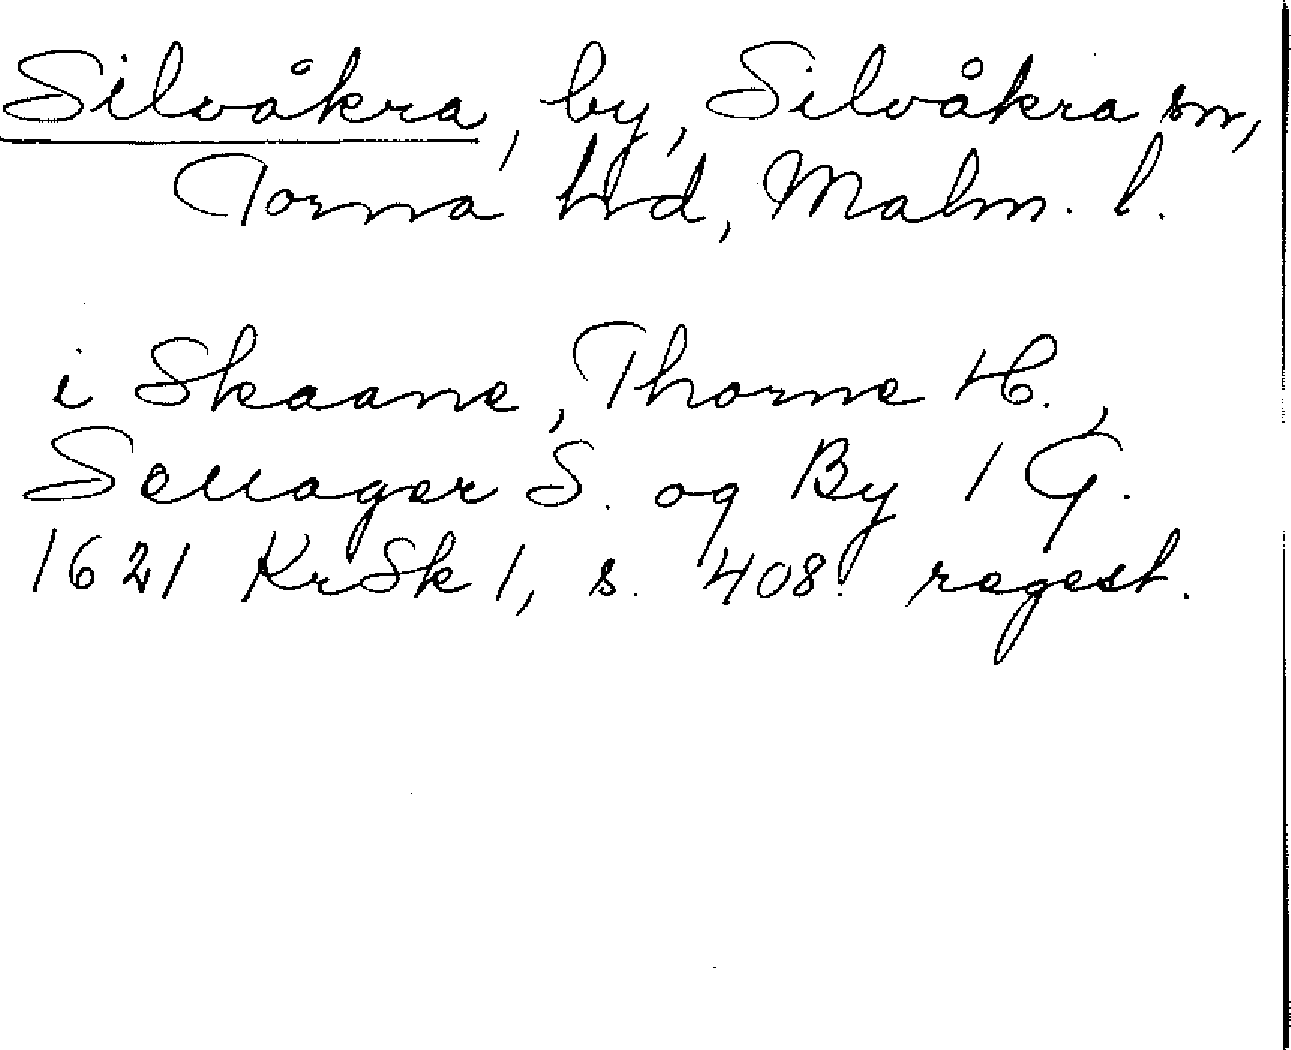 Silvåkra, by, Silvåkra sn,
Torna hd, Malm. l.
i Skaane, Thorne H.,
Seuager S. og By 1 G.
1621 KrSk 1, s. 408. regest.